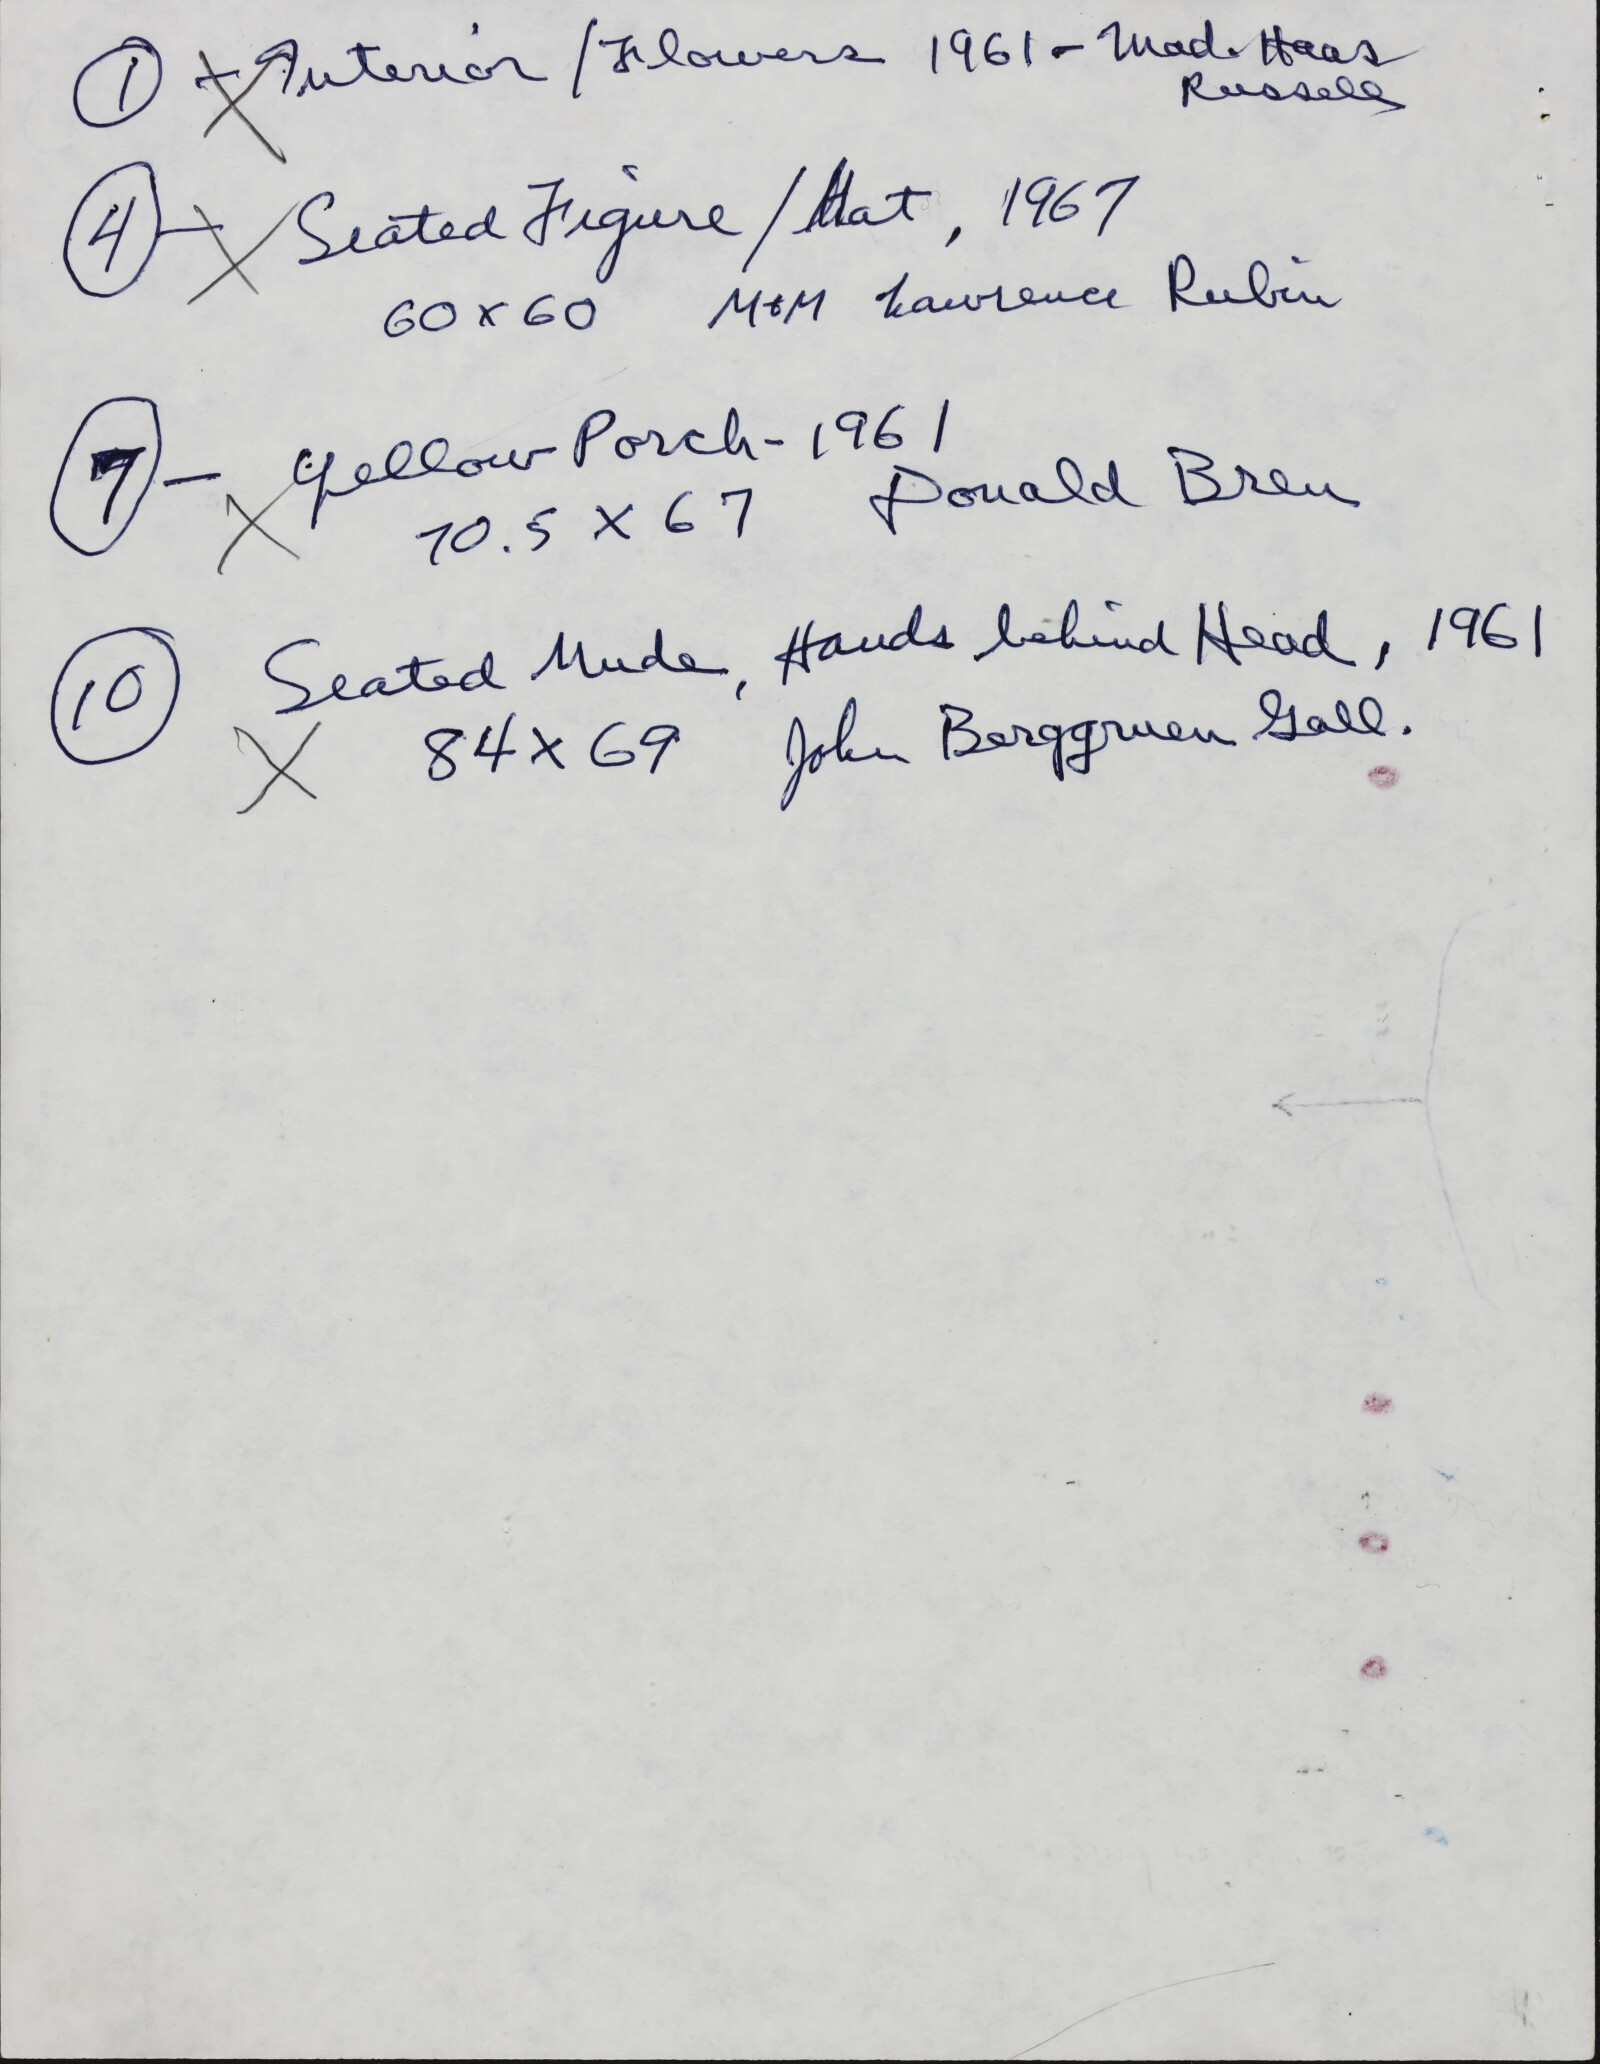 ① - Interior / Flowers 1961 - Mad. Haas
Russell
④ - Seated Figure / Hat, 1967
60 x 60 M+M Lawrence Rubin
⑦ - Yellow Porch - 1961
70.5 X 67 Donald Bren
⑩ Seated Nude, Hands behind Head, 1961
84 X 69 John Berggruen Gall.